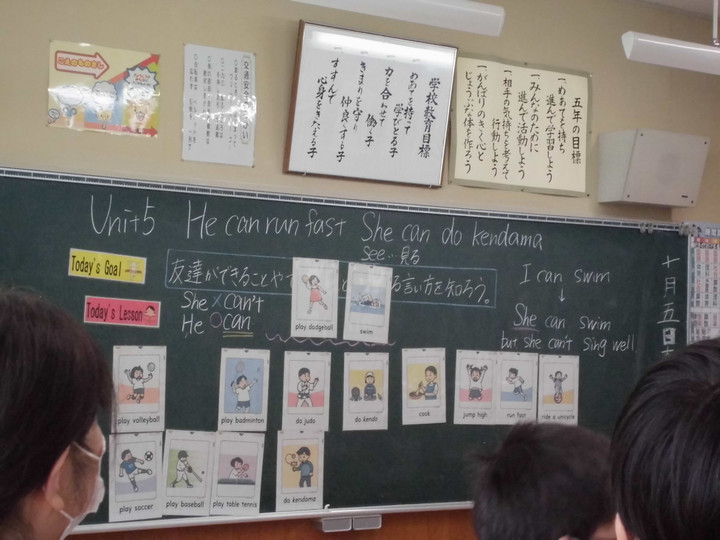 学校教育目標
一 めあてを持って
学びとる子
一 力を合わせて
働く子
一 きまりを守り
仲良くする子
一 すすんで
心身をきたえる子
五年の目標
一、めあてを持ち
進んで学習しよう
一、みんなのために
進んで活動しよう
一、相手の気持ちを考えて
行動しよう
一、がんばりのきく心と
じょうぶな体を作ろう
Unit5 He can run fast She can do kendama
see…見る
Today's Goal
友達ができることや
る言い方を知ろう。
Today's Lesson
She × can't
He ○ can
I can swim
↓
She can swim
but she can't sing well
十月五日
play dodgeball
swim
play volleyball
play badminton
do judo
do kendo
cook
jump high
run fast
ride a unicycle
play soccer
play baseball
play table tennis
do kendama